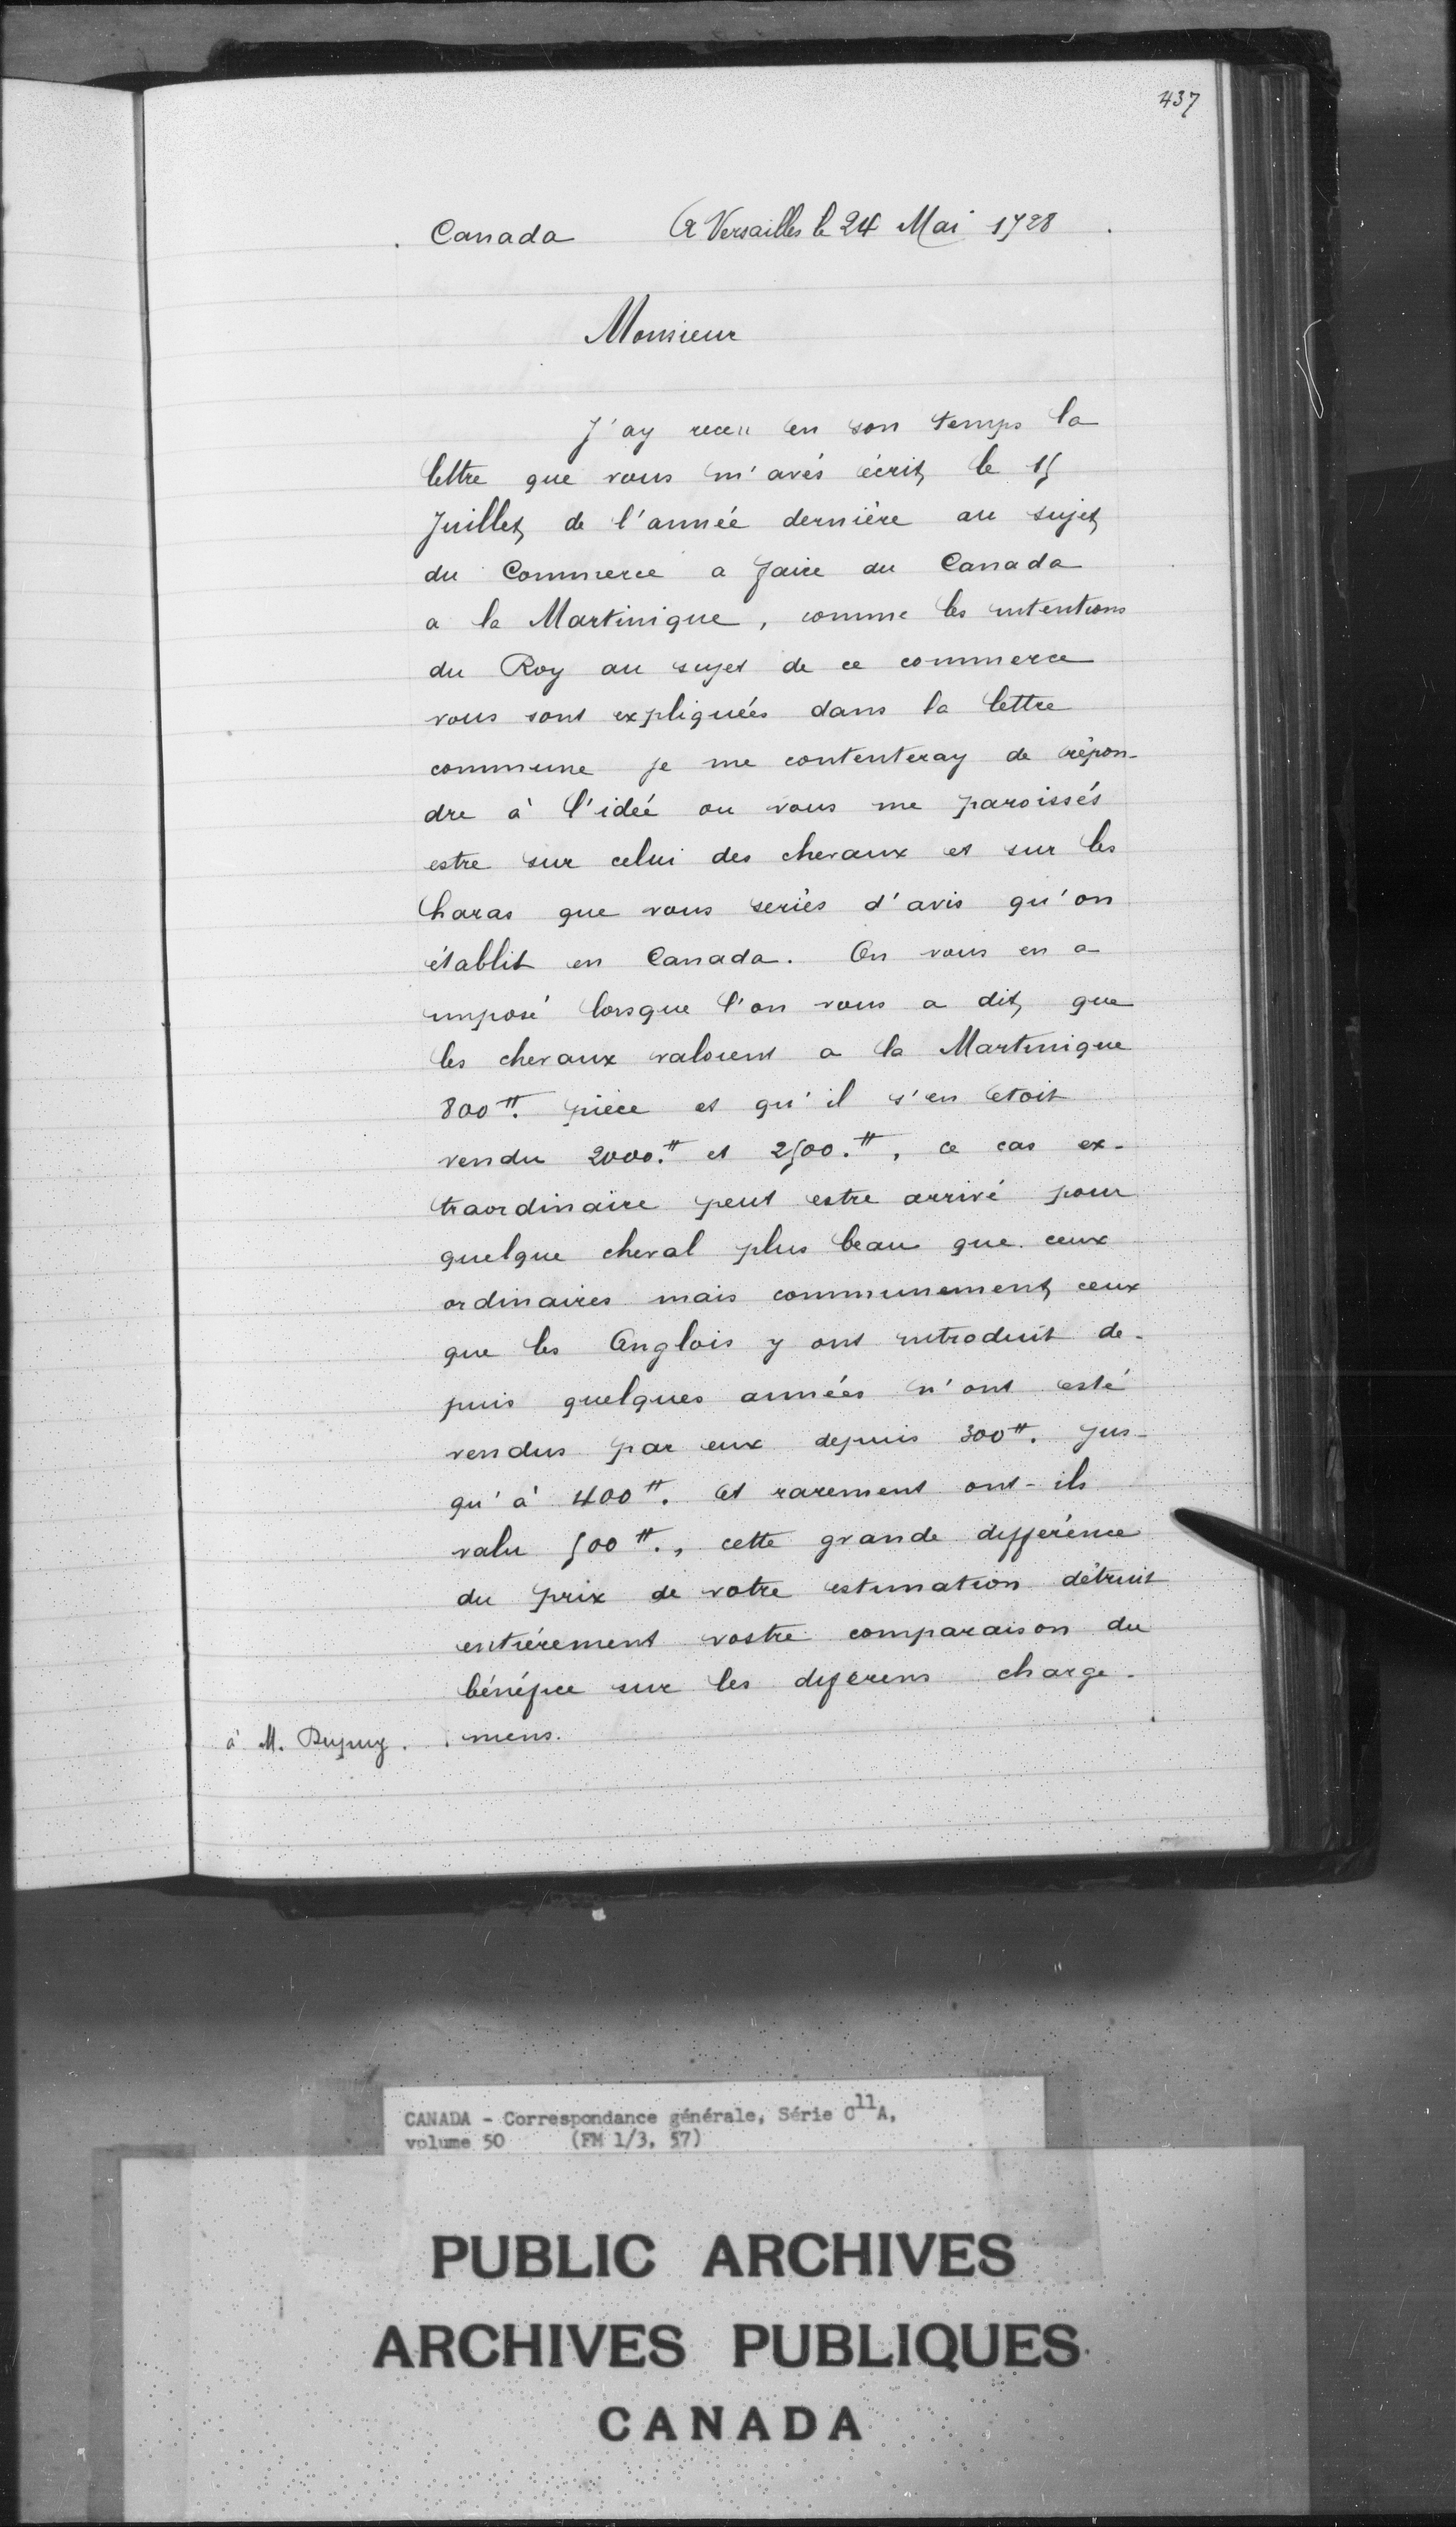 437
Canada A Versailles le 24 Mai 1728
Monsieur
J'ay receu en son temps la
lettre que vous m'avés écrit le 15
Juillet de l'année dernière au sujet
du Commerce a faire du Canada
a la Martinique, comme les intentions
du Roy au sujet de ce commerce
vous sont expliquées dans la lettre
commune je me contenteray de répon-
dre à l'idée ou vous me paroissés
estre sur celui des chevaux et sur les
haras que vous seriés d'avis qu'on
établit en Canada. On vous en a
imposé lorsque l'on vous a dit que
les chevaux valoient a la Martinique
800 ₶. pièce et qu'il s'en étoit
vendu 2000. ₶ et 2500. ₶, ce cas ex-
traordinaire peut estre arrivé pour
quelque cheval plus beau que ceux
ordinaires mais communement ceux
que les Anglois y ont introduit de-
puis quelques années n'ont esté
vendus par eux depuis 300 ₶. jus-
qu'à 400 ₶. et rarement ont-ils
valu 500 ₶., cette grande différence
du prix de votre estimation détruit
entiérement vostre comparaison du
bénéfice sur les diferens charge-
à M. Dupuy. mens.
CANADA - Correspondance générale, Série C11A,
volume 50 (FM 1/3, 57)
PUBLIC ARCHIVES
ARCHIVES PUBLIQUES
CANADA